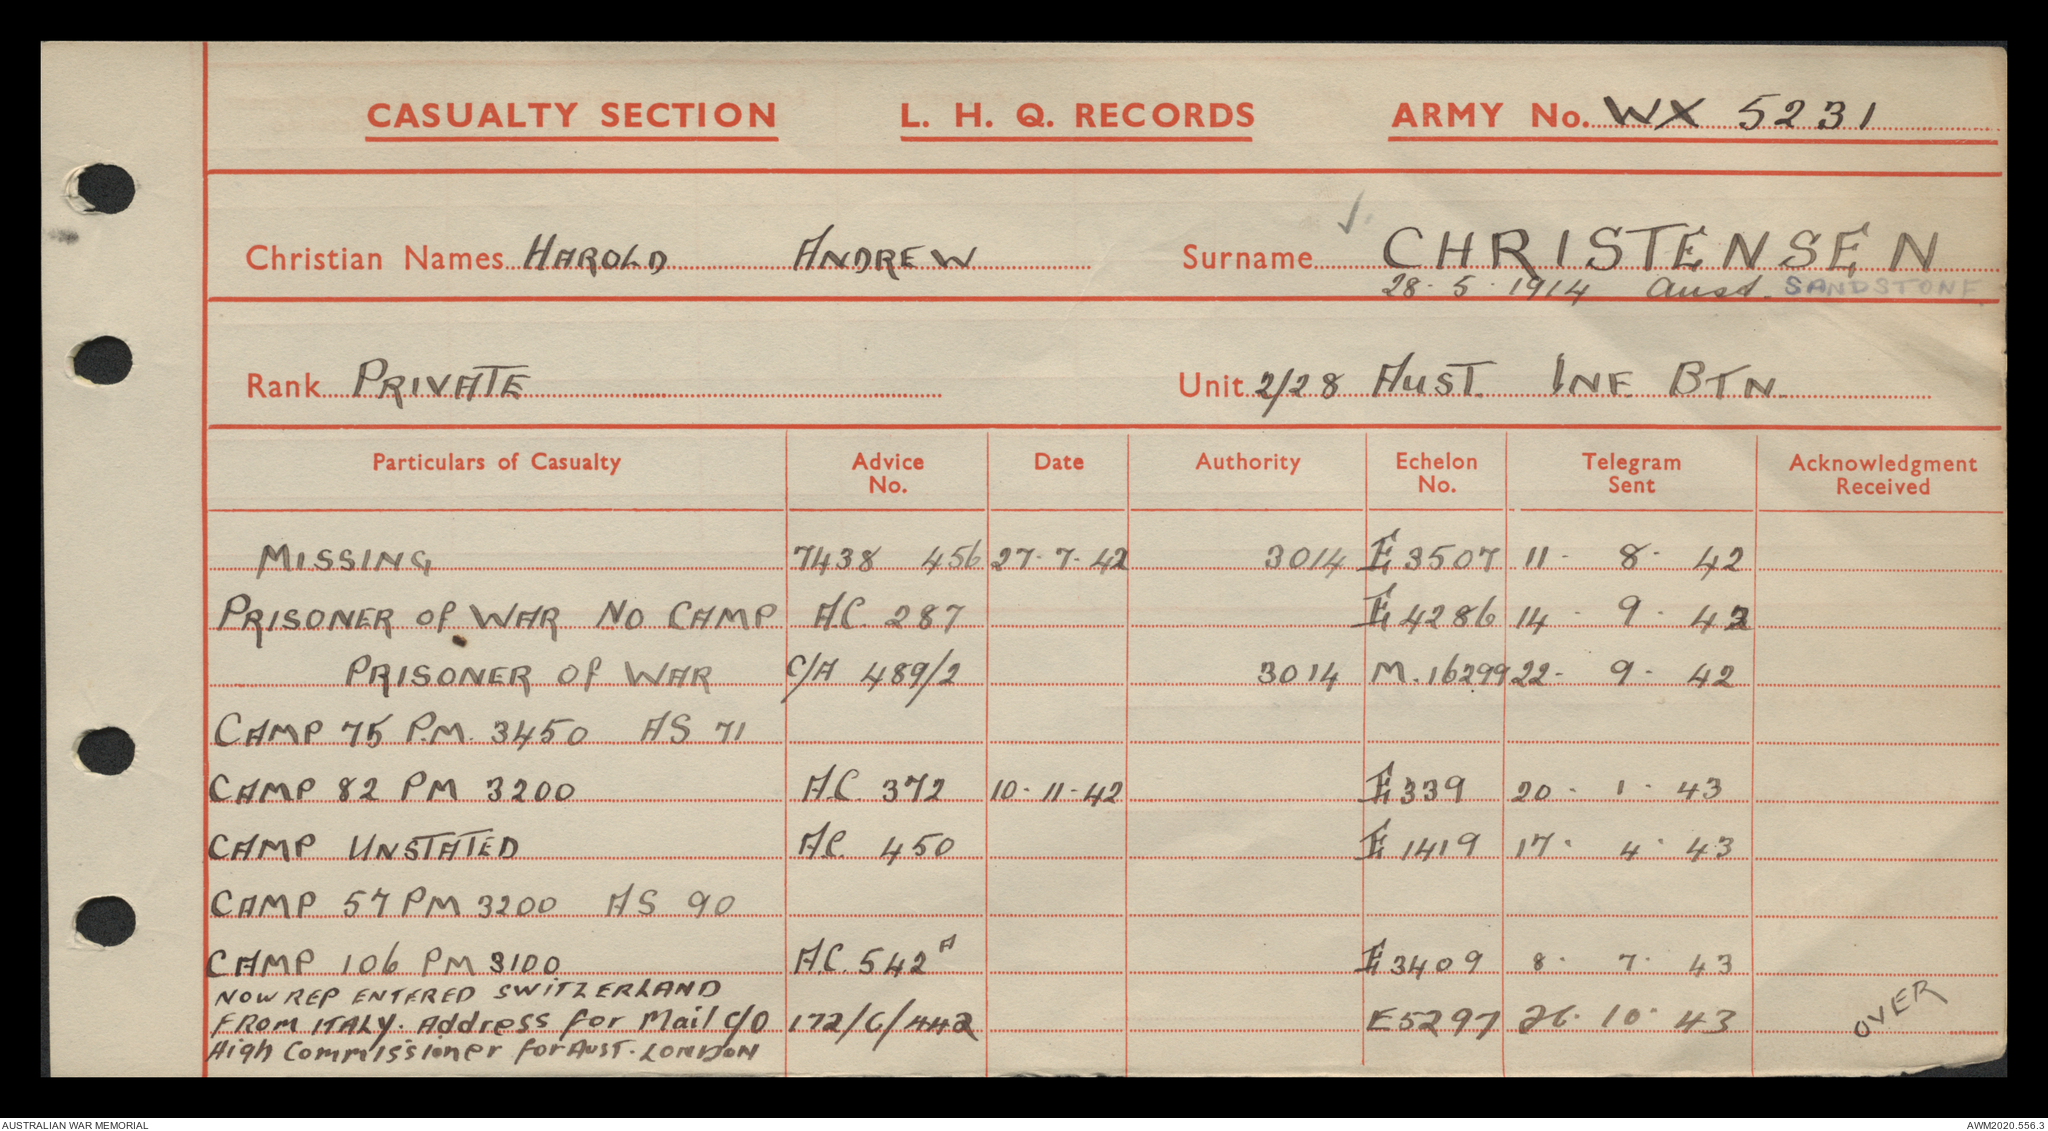 CASUALTY SECTION L. H. Q. RECORDS ARMY No. WX 5231
Christian Names HAROLD ANDREW Surname CHRISTENSEN
28. 5. 1914 Aust. SANDSTONE
Rank PRIVATE Unit 2/28 AUST. INF. BTN.
Particulars of Casualty Advice No. Date Authority Echelon No. Telegram Sent Acknowledgment Received
MISSING 7438 456 27.7.42 3014 E 3507 11. 8. 42
PRISONER of WAR NO CAMP A.C. 287 E 4286 14. 9. 42
PRISONER of WAR C/A 489/2 3014 M.16299 22. 9. 42
CAMP 75 P.M. 3450 AS 71
CAMP 82 PM 3200 A.C. 372 10.11.42 E 339 20. 1. 43
CAMP UNSTATED A.C. 450 E 1419 17. 4. 43
CAMP 57 PM 3200 AS 90
CAMP 106 PM 3100 A.C. 542A E 3409 8. 7. 43
NOW REP ENTERED SWITZERLAND
FROM ITALY. Address for Mail C/O 172/G/442 E5297 26. 10. 43
High Commissioner for AUST. LONDON
OVER
AUSTRALIAN WAR MEMORIAL AWM2020.556.3